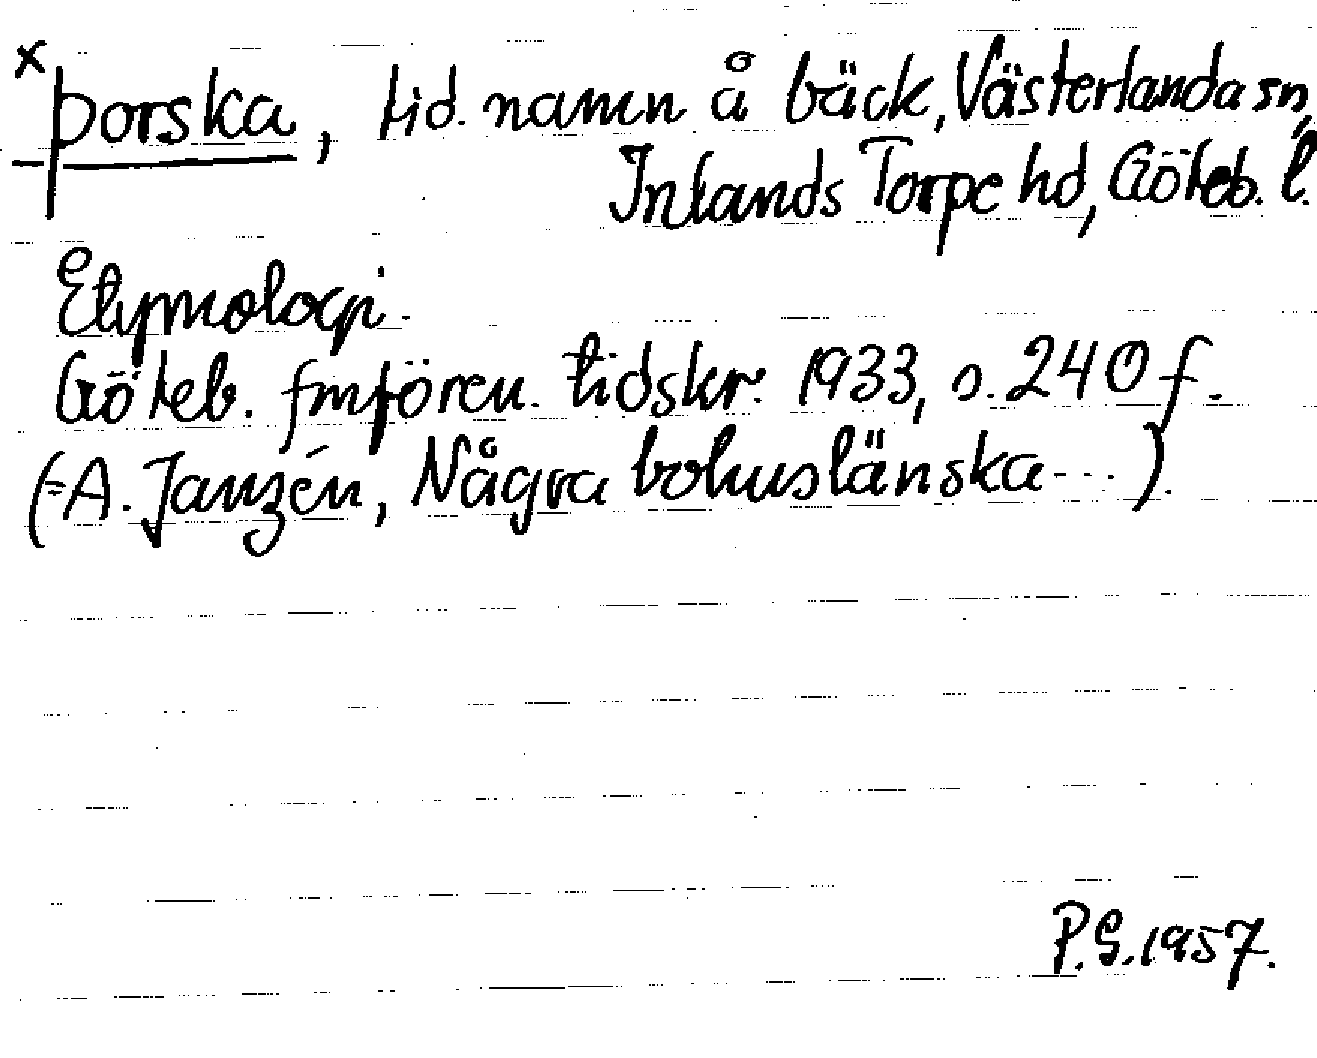 ×þorska, tid. namn å bäck, Västerlanda sn,
Inlands Torpe hd, Göteb. l.
Etymologi.
Göteb. fmfören. tidskr. 1933, s. 240 f.
(=A. Janzén, Några bohuslänska ...).
P.G. 1957.